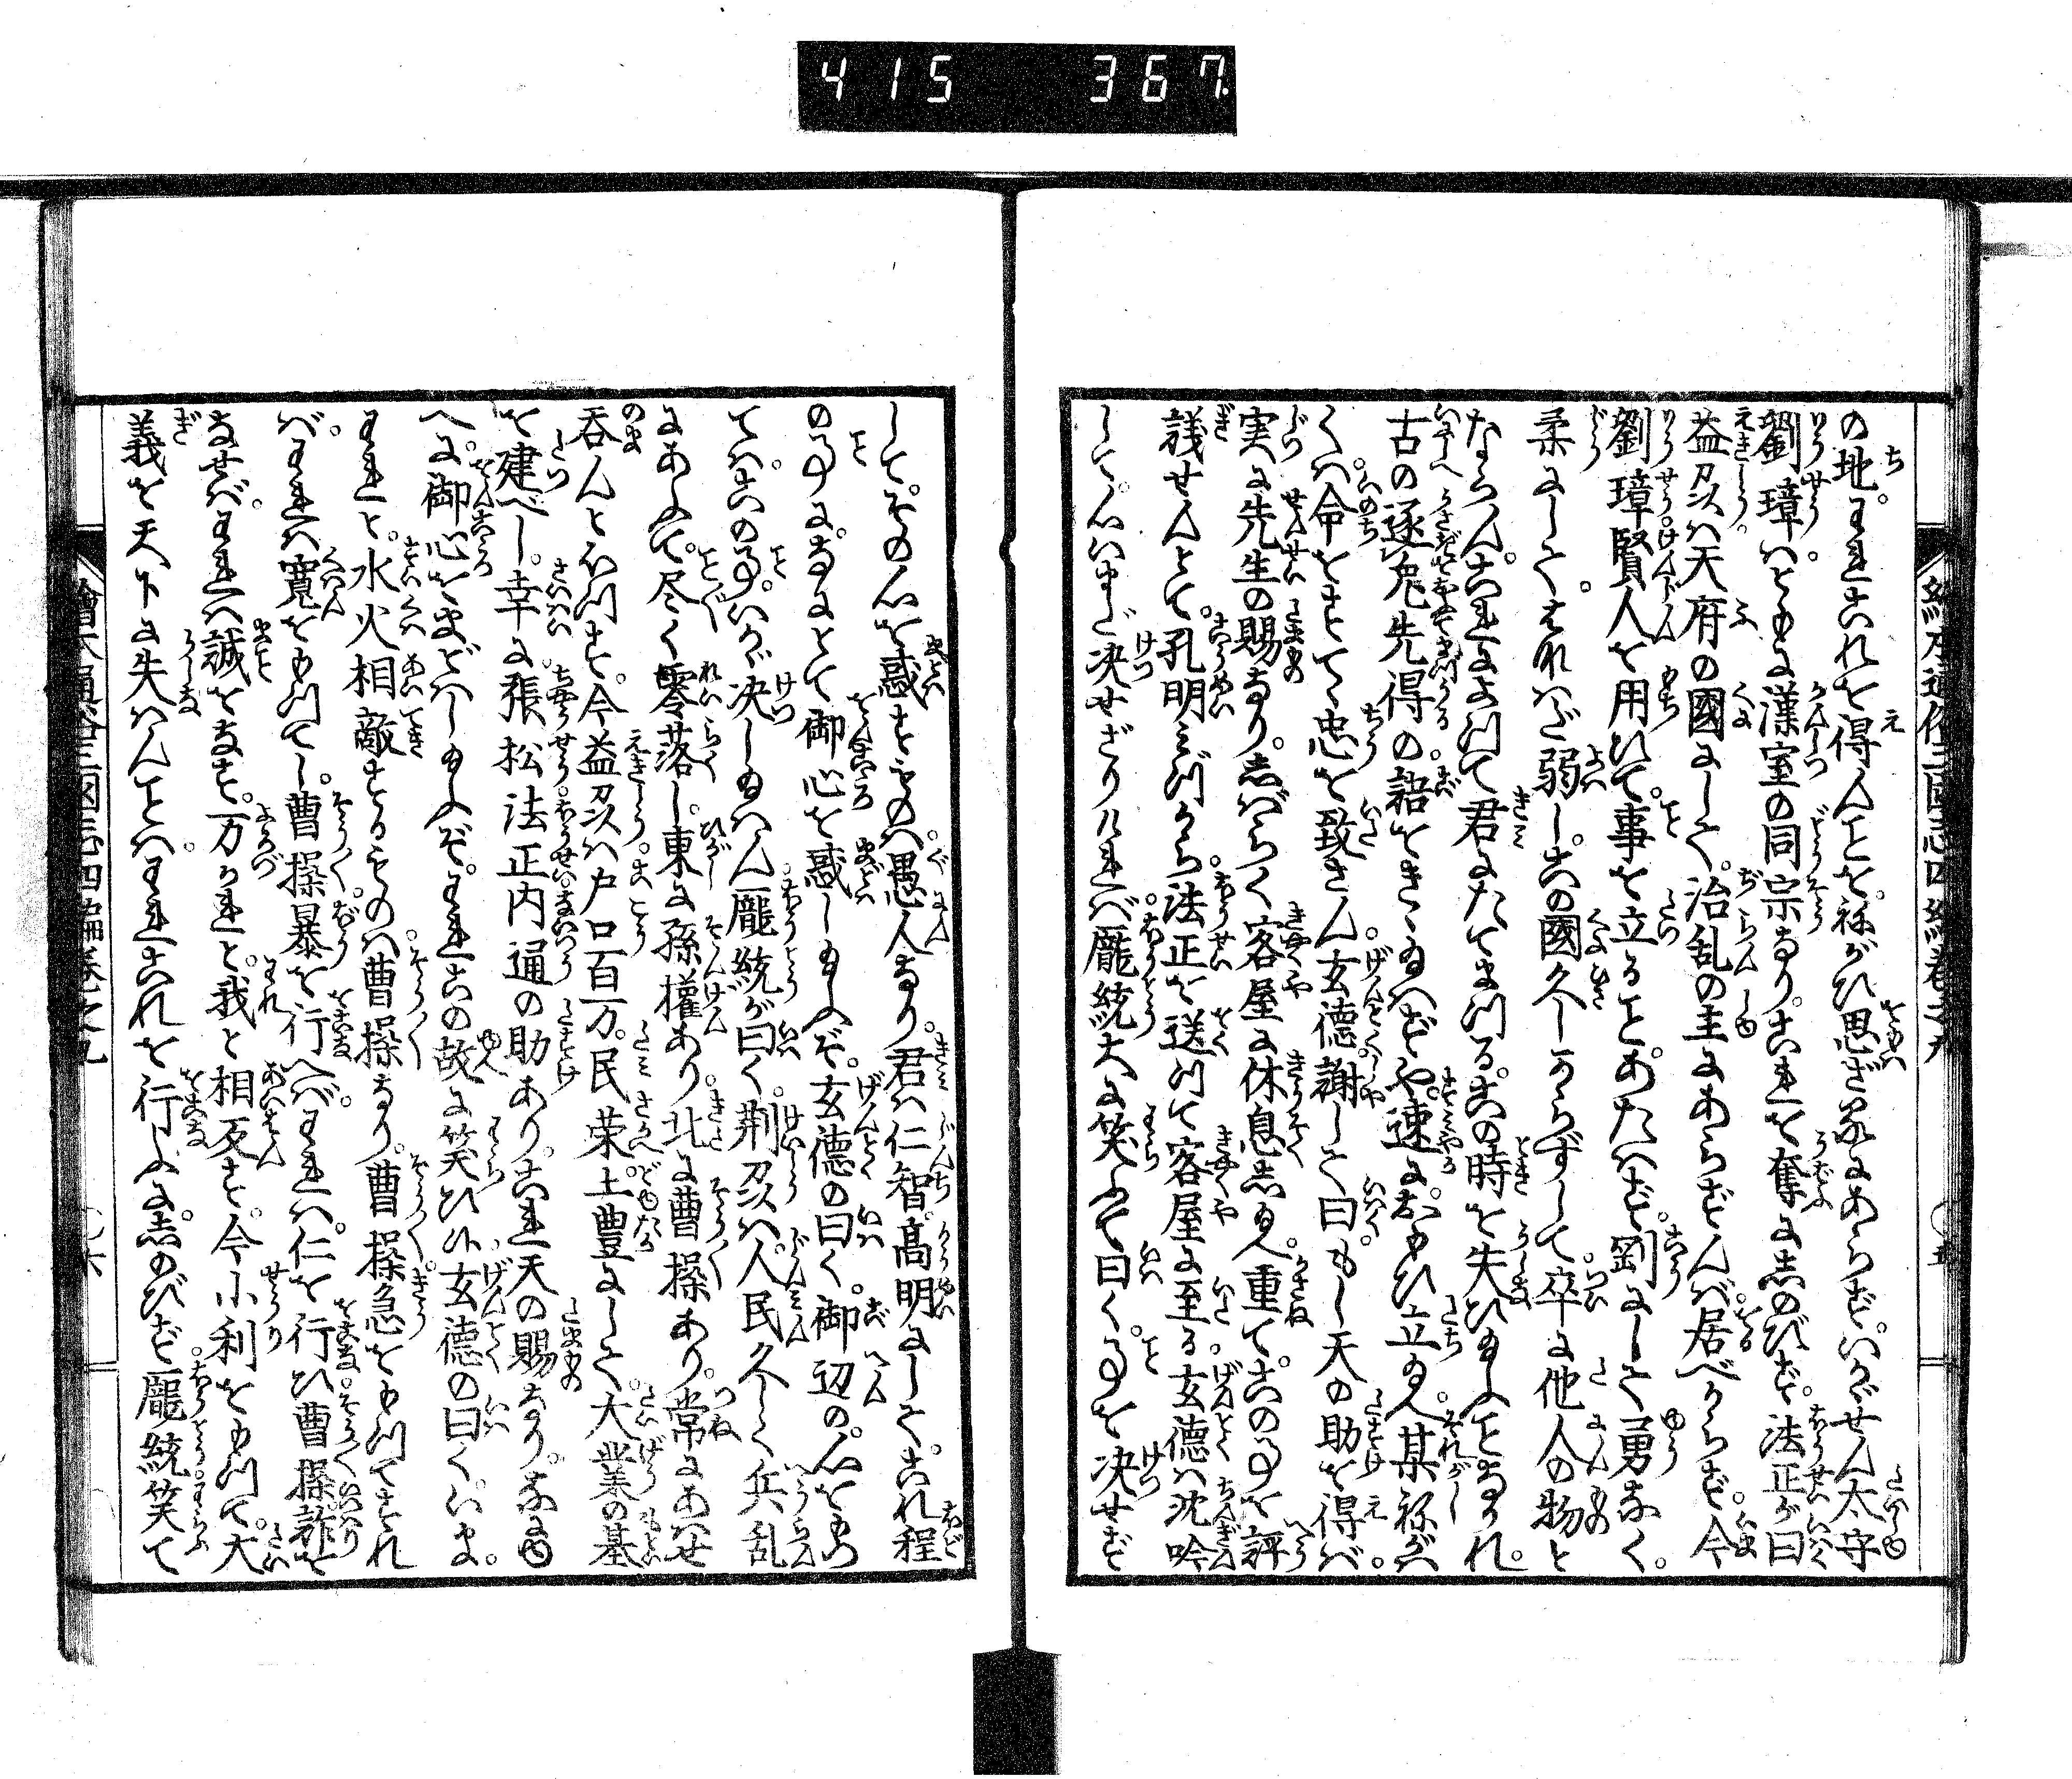 415 367
の地。われこれを得んことを。祢がひ思ざるにあらず。いかゞせん太守
劉璋は。ともに漢室の同宗なり。これを奪に志のびず。法正が曰
益州は天府の國にして。治乱の主にあらずんば居べからず。今
劉璋賢人を用ひて。事を立ることあたはず。剛にして勇なく。
柔にして。はなハだ弱し。この國久しからずして。卒に他人の物と
ならん。これによつて君にたてまつる。この時を失ひ給ふことなかれ。
古の逐兎先得の語をきゝ給はずや。速に思ひ立給へ。某祢がは
くハ。命をすてゝ忠を致さん。玄德謝して曰。もし天の助を得ば。
実に先生の賜なり。志バらく客屋に休息し給へ。重て。この事を評
議せんとて。孔明みづから。法正を送つて客屋に至る。玄德ハ沈吟
して。いまだ決せざりければ。龐統大に笑ふて曰く。事を決せず
して。その心を惑すものハ。愚人なり。君ハ仁智高明にして。これ程
の事に。なにとて御心を惑し給ふぞ。玄德の曰く。御辺の心をもつ
てハ。この事。いかゞ決し給はん。龐統が曰く。荆州ハ。人民久しく兵乱
にあふて。尽く零落し。東に孫權あり。北に曹操あり。常にあハせ
呑んとほつす。今益州ハ戸口百万。民栄土豊にして。大業の基
を建べし。幸に。張松法正内通の助あり。これ天の賜なり。なにゆ
へに。御心をまどハし給ふぞ。われこの故に笑ひ候。玄德の曰く。いま。
われと。水火相敵するものハ曹操なり。曹操急をもつてすれ
ば。われハ寛をもつてし。曹操暴を行へば。われハ。仁を行ひ曹操詐を
なせば。われハ誠をなす。万かれと。我と相反す。今小利をもつて。大
義を天下に失ハんことハ。われこれを行ふに。志のびず。龐統笑て
繪本通俗三國志四編卷之九
五
繪本通俗三國志四編卷之九
六